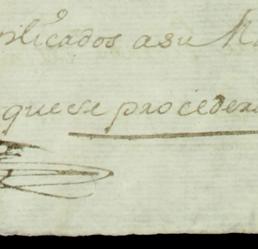 plicados a su M
que se procedera